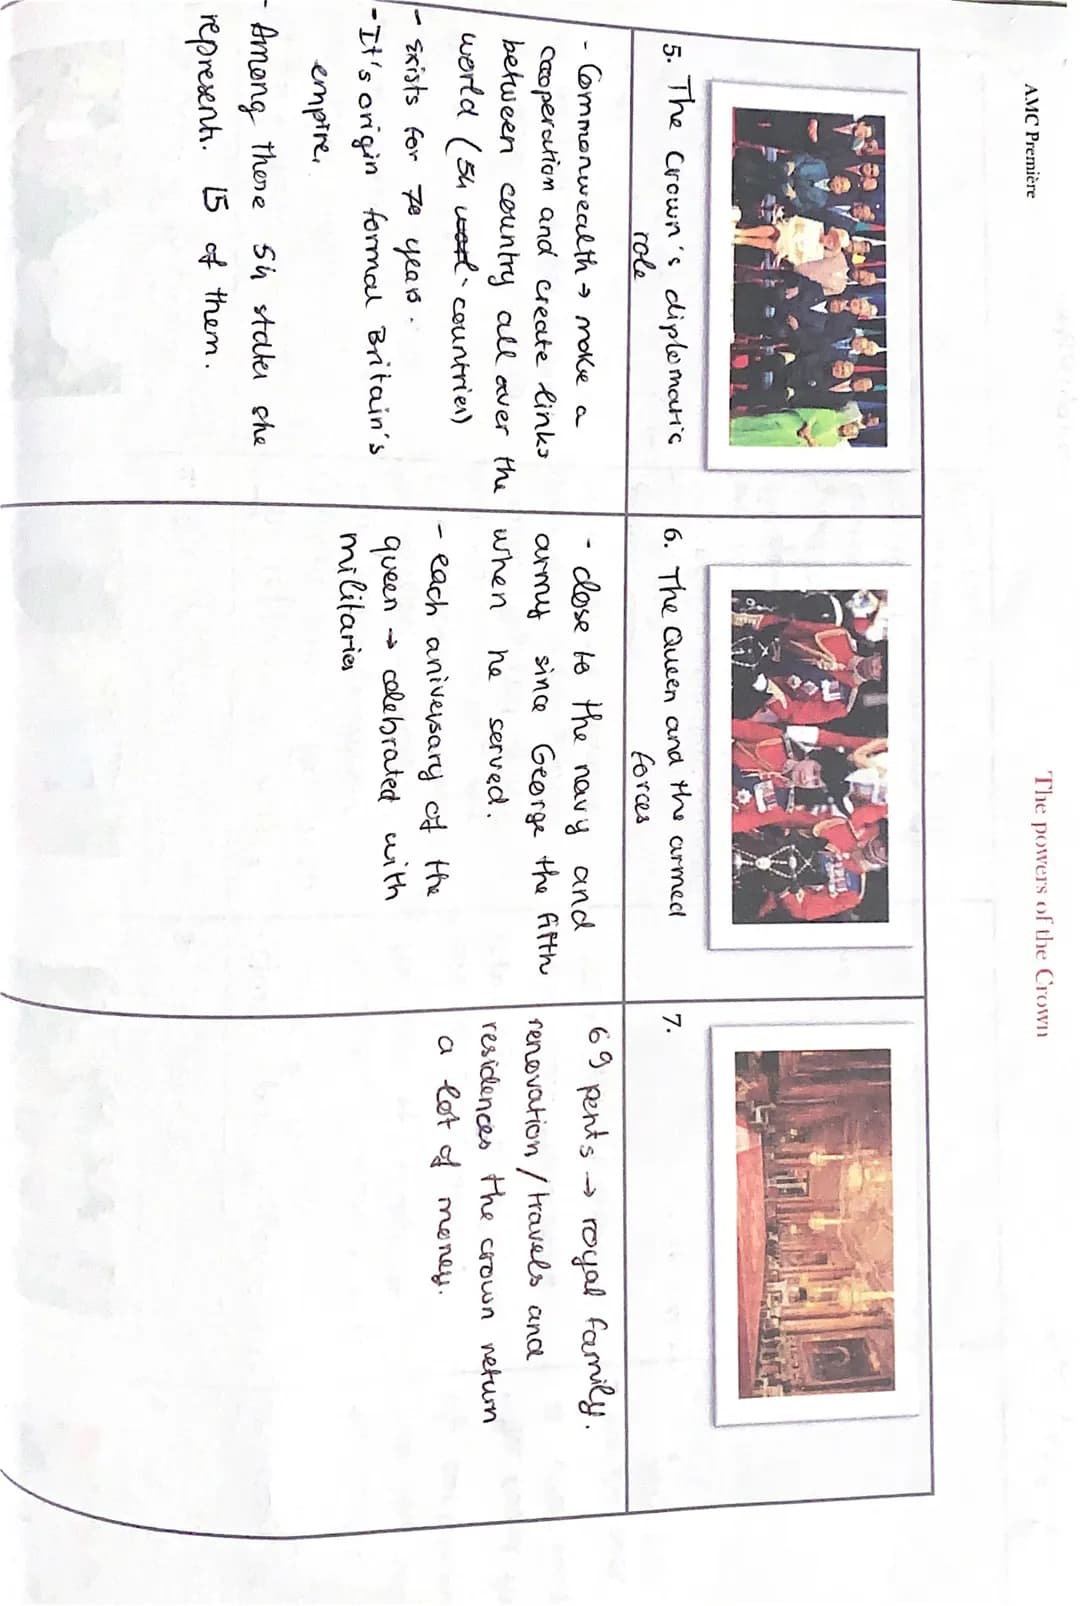 AMC Première
The powers of the Crown
5. The Crown's diplomatic
role
- Commonwealth → make a
cooperation and create links
between country all over the
world (54 countries)
- Exists for 70 years.
- It's origin formal Britain's
empire.
- Among there 54 states she
represent. 15 of them.
6. The Queen and the armed
forces
- close to the navy and
army since George the fifth
when he served.
- each aniversary of the
queen → celebrated with
militaries
7.
69 pents → royal family.
renovation / travels and
residences the crown return
a lot of money.